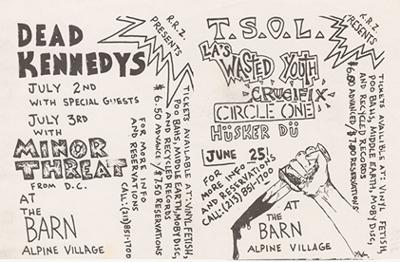 DEAD
KENNEDYS
JULY 2ND
WITH SPECIAL GUESTS
JULY 3RD
WITH
MINOR
THREAT
FROM D.C.
AT
THE
BARN
ALPINE VILLAGE
R.R.Z.
PRESENTS
TICKETS AVAILABLE AT: VINYL FETISH,
POO BAHS, MIDDLE EARTH, MOBY DISC,
AND RECYCLED RECORDS
$6.50 ADVANCE / $7.50 RESERVATIONS
FOR MORE INFO
AND RESERVATIONS
CALL: (213) 851-1700
T.S.O.L.
LA'S WASTED YOUTH
CRUCIFIX
CIRCLE ONE
HÜSKER DÜ
JUNE 25!
FOR
MORE INFO
AND RESERVATIONS
CALL: (213) 851-1700
AT
THE
BARN
ALPINE VILLAGE
R.R.Z.
PRESENTS
TICKETS AVAILABLE AT: VINYL FETISH,
POO BAHS, MIDDLE EARTH, MOBY DISC,
AND RECYCLED RECORDS